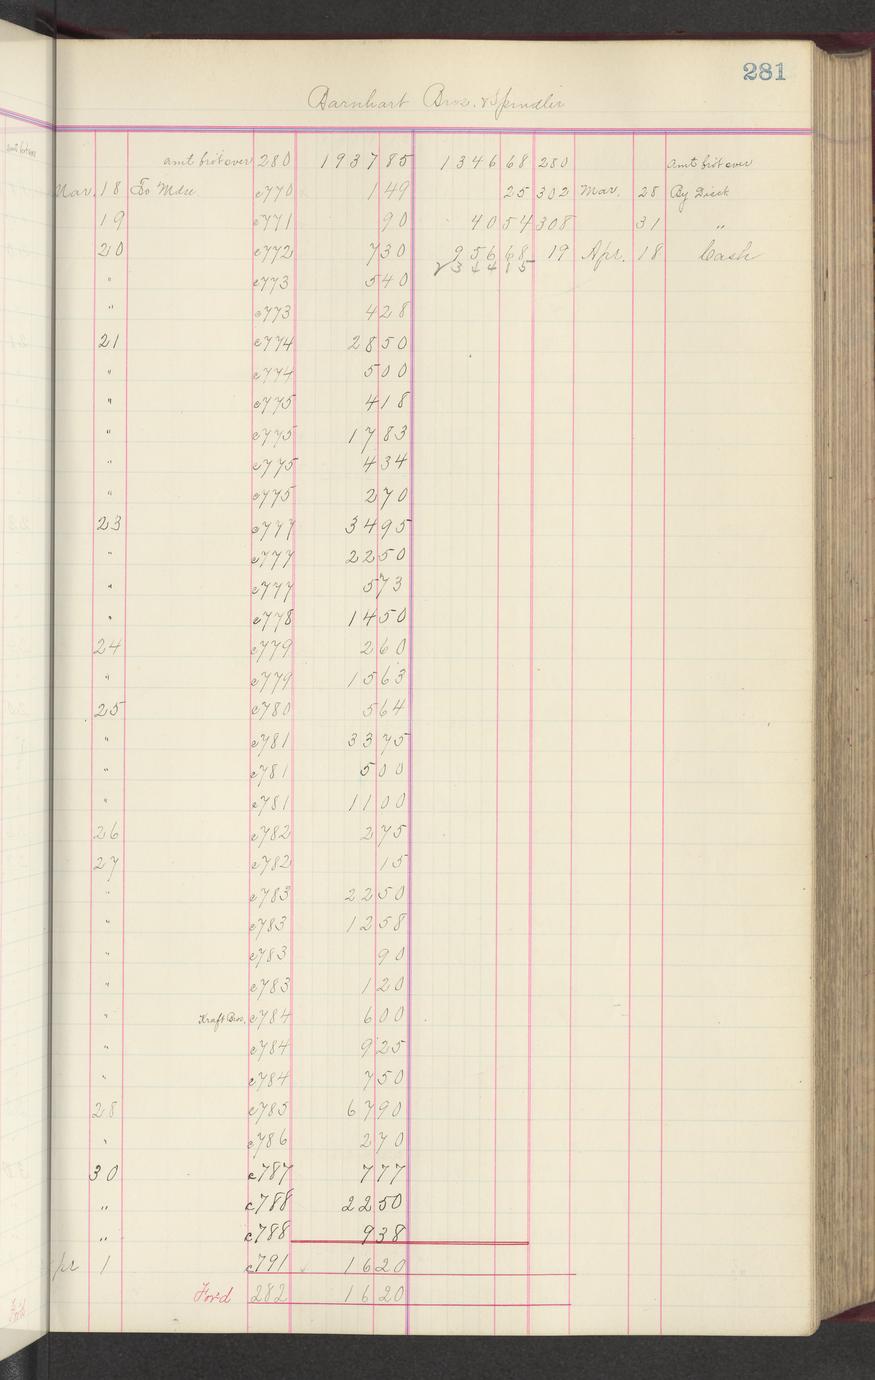 281
Barnhart Bros. & Spindler
amt brot over 280 1937 85 1346 68 280 amt brot over
Mar. 18 To Mdse c770 1 49 25 302 Mar. 28 By Disct
19 c771 90 40 54 308 31 "
20 c772 7 30 956 68 19 Apr. 18 Cash
" c773 5 40 2344 15
" c773 4 28
21 c774 28 50
" c774 5 00
" c775 4 18
" c775 17 83
" c775 4 34
" c775 2 70
23 c777 34 95
" c777 22 50
" c777 5 73
" c778 14 50
24 c779 2 60
" c779 15 63
25 c780 5 64
" c781 33 75
" c781 5 00
" c781 11 00
26 c782 2 75
27 c782 15
" c783 22 50
" c783 12 58
" c783 90
" c783 1 20
" Kraft Bros. c784 6 00
" c784 9 25
" c784 7 50
28 c785 67 90
" c786 2 70
30 c787 7 77
" c788 22 50
" c788 9 38
Apr 1 c791 16 20
Ford 282 16 20